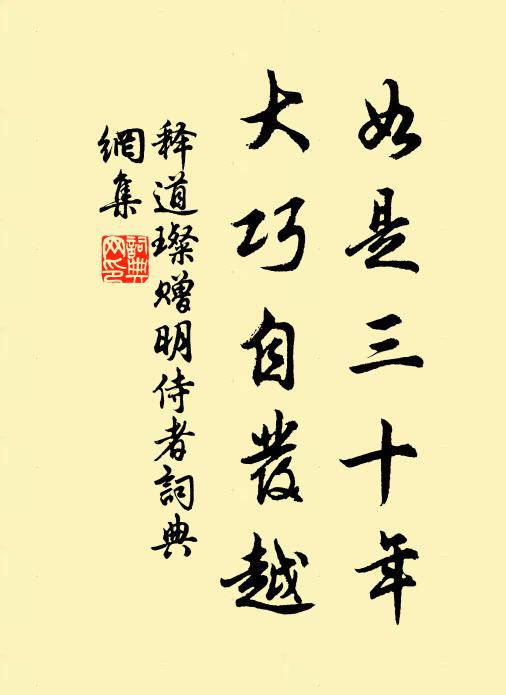 如是三十年
大巧自發越
释道璨赠明侍者詞典
網集
詞典網印